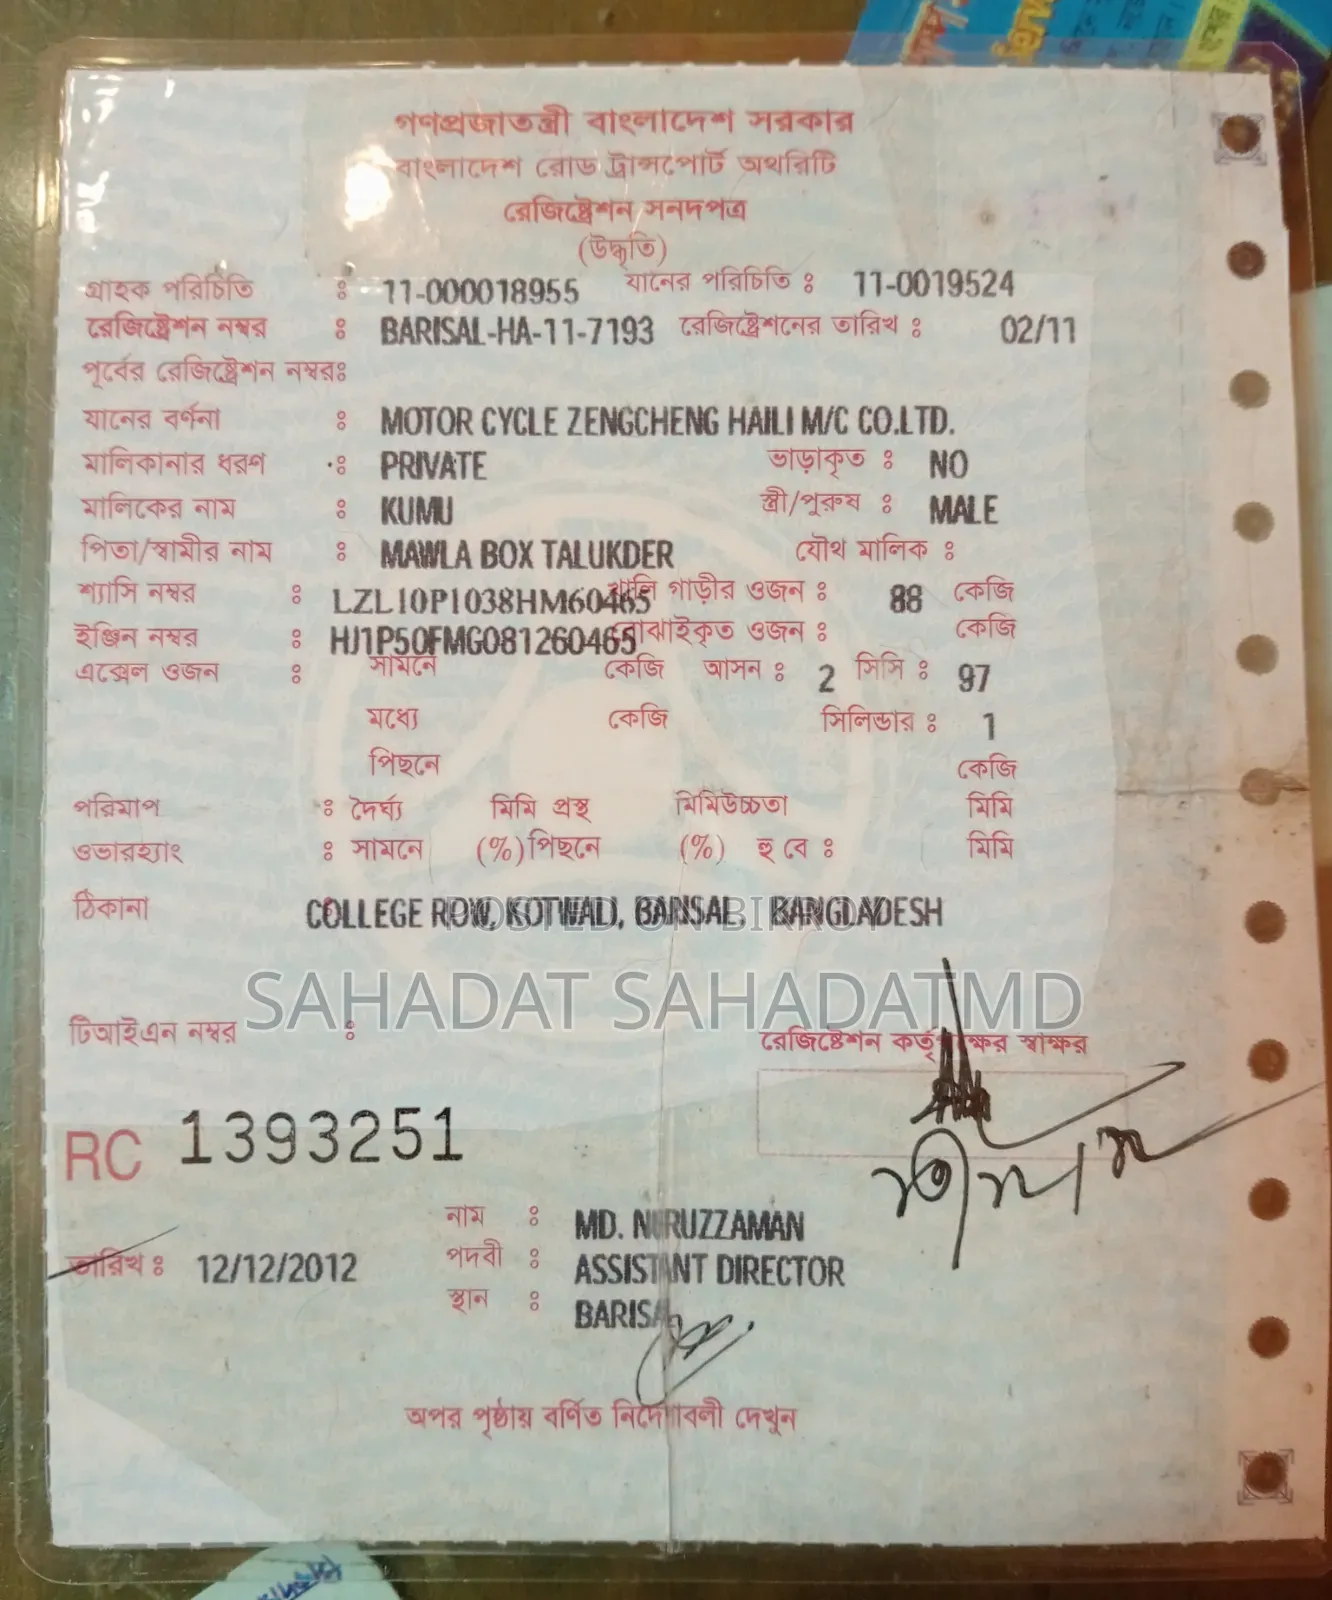 গণপ্রজাতন্ত্রী বাংলাদেশ সরকার
বাংলাদেশ রোড ট্রান্সপোর্ট অথরিটি
রেজিষ্ট্রেশন সনদপত্র
(উদ্ধৃতি)
গ্রাহক পরিচিতি : 11-000018955 যানের পরিচিতি : 11-0019524
রেজিষ্ট্রেশন নম্বর : BARISAL-HA-11-7193 রেজিষ্ট্রেশনের তারিখ : 02/11
পূর্বের রেজিষ্ট্রেশন নম্বর:
যানের বর্ণনা : MOTOR CYCLE ZENGCHENG HAILI M/C CO.LTD.
মালিকানার ধরণ : PRIVATE ভাড়াকৃত : NO
মালিকের নাম : KUMU স্ত্রী/পুরুষ : MALE
পিতা/স্বামীর নাম : MAWLA BOX TALUKDER যৌথ মালিক :
শ্যাসি নম্বর : LZL10P1038HM60465 খালি গাড়ীর ওজন : 88 কেজি
ইঞ্জিন নম্বর : HJ1P50FMG081260465 বোঝাইকৃত ওজন : কেজি
এক্সেল ওজন : সামনে কেজি আসন : 2 সিসি : 97
মধ্যে কেজি সিলিন্ডার : 1
পিছনে কেজি
পরিমাপ : দৈর্ঘ্য মিমি প্রস্থ মিমিউচ্চতা মিমি
ওভারহ্যাং : সামনে (%) পিছনে (%) হু বে : মিমি
ঠিকানা COLLEGE ROW, KOTWALI, BARISAL, BANGLADESH
POSTED ON BIKROY
SAHADAT SAHADATMD
টিআইএন নম্বর :
রেজিষ্টেশন কর্তৃপক্ষের স্বাক্ষর
RC 1393251
নাম : MD. NURUZZAMAN
তারিখ : 12/12/2012 পদবী : ASSISTANT DIRECTOR
স্থান : BARISAL
অপর পৃষ্ঠায় বর্ণিত নির্দেশাবলী দেখুন